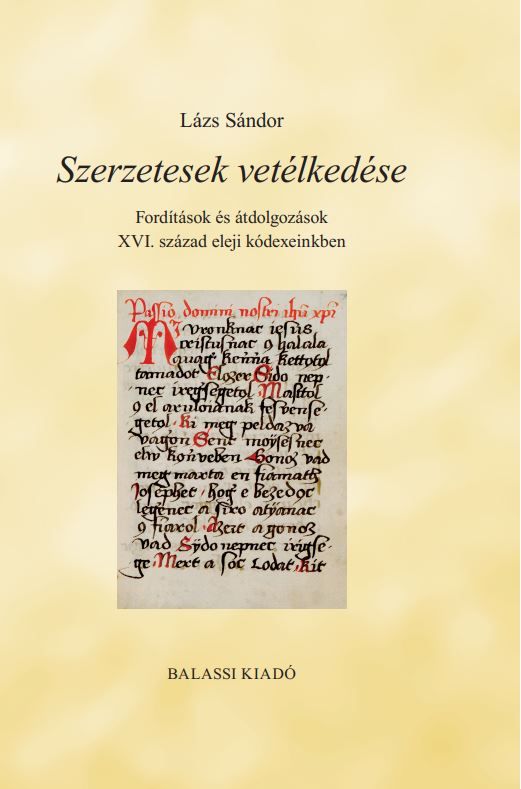 Lázs Sándor
Szerzetesek vetélkedése
Fordítások és átdolgozások
XVI. század eleji kódexeinkben
Passio domini nostri ihu xpi
Mi vronknac iesus
cristusnac 9 halala
kettotol
tamadot Elozer Sido nep-
nec iregsegetol Masttol
9 el aruloianak fosvense-
getol ki meg peldazva
vagon Sent moÿses nec
elw konveben Gonoz vad
meg marta en fiamath
Josephet hog e bezedoc
legenec a siro atÿanac
9 fiarol Azert a gonoz
vad Sÿdo nepnec irigse-
ge Mert a soc Lodat kit
BALASSI KIADÓ